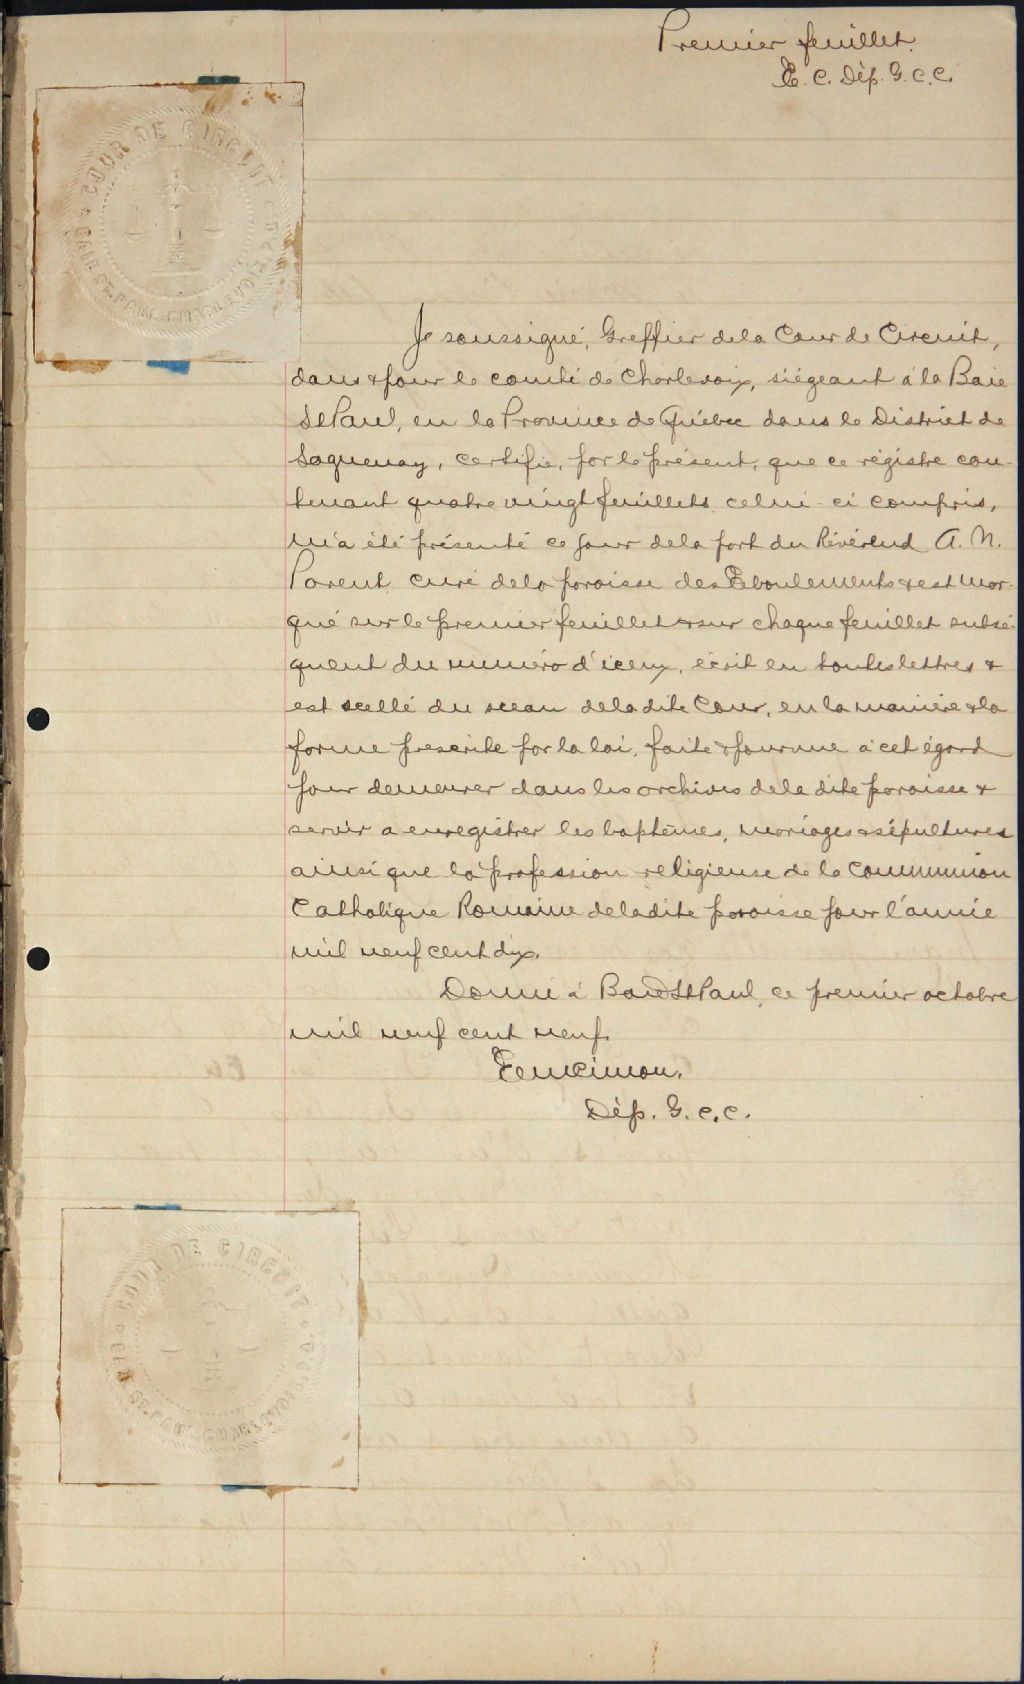 Premier feuillet.
E. C. Dép. G. C. C.
COUR DE CIRCUIT
BAIE ST. PAUL CHARLEVOIX
Je soussigné, Greffier de la Cour de Circuit,
dans & pour le comté de Charlevoix, siégeant à la Baie
St Paul, en la Province de Québec dans le District de
Saguenay, certifie, par le présent, que ce régistre con-
tenant quatre vingt feuillets, celui-ci compris,
m'a été présenté ce jour de la part du Révérend A. N.
Parent, curé de la paroisse des Eboulements & est mar-
qué sur le premier feuillet & sur chaque feuillet subsé-
quent du numéro d'iceux, écrit en toutes lettres &
est scellé du sceau de la dite Cour, en la manière & la
forme prescrite par la loi, faite & pourvue à cet égard
pour demeurer dans les archives de la dite paroisse &
servir a enregistrer les baptêmes, mariages & sépultures
ainsi que la profession religieuse de la Communion
Catholique Romaine de la dite paroisse pour l'année
mil neuf cent dix.
Donné à Baie St Paul, ce premier octobre
mil neuf cent neuf.
Dép. G. C. C.
COUR DE CIRCUIT
BAIE ST. PAUL CHARLEVOIX